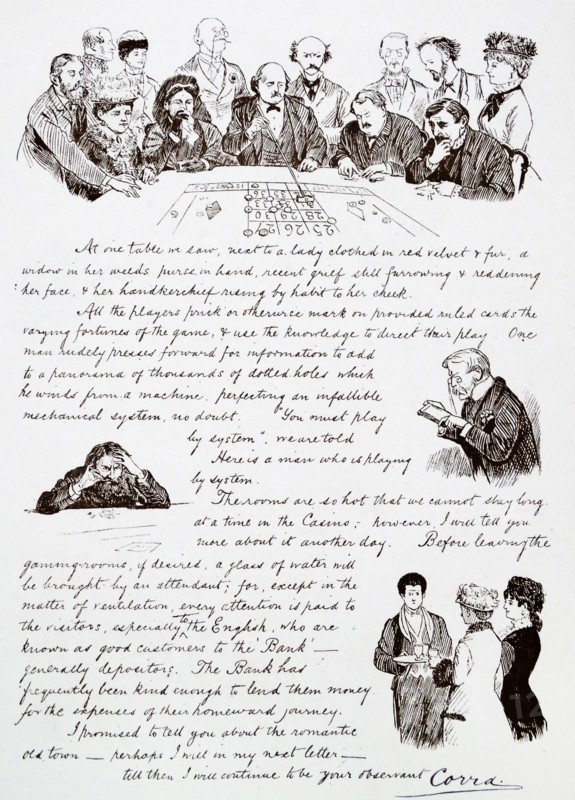 At one table we saw, next to a lady clothed in red velvet & fur, a
widow in her weeds purse in hand, recent grief still furrowing & reddening
her face, & her handkerchief rising by habit to her cheek.
All the players prick or otherwise mark on provided ruled cards the
varying fortunes of the game, & use the knowledge to direct their play One
man rudely presses forward for information to add
to a panorama of thousands of dotted holes which
he winds from a machine, perfecting an infallible
mechanical system, no doubt. "You must play
by system", we are told
Here is a man who is playing
by system.
The rooms are so hot that we cannot stay long
at a time in the Casino; however, I will tell you
more about it another day. Before leaving the
gaming-rooms, if desired, a glass of water will
be brought by an attendant; for, except in the
matter of ventilation, every attention is paid to
the visitors, especially to the English, who are
known as good customers to the 'Bank' —
generally depositors. The Bank has
frequently been kind enough to lend them money
for the expenses of their homeward journey.
I promised to tell you about the romantic
old town — perhaps I will in my next letter —
till then I will continue to be your observant Corra.